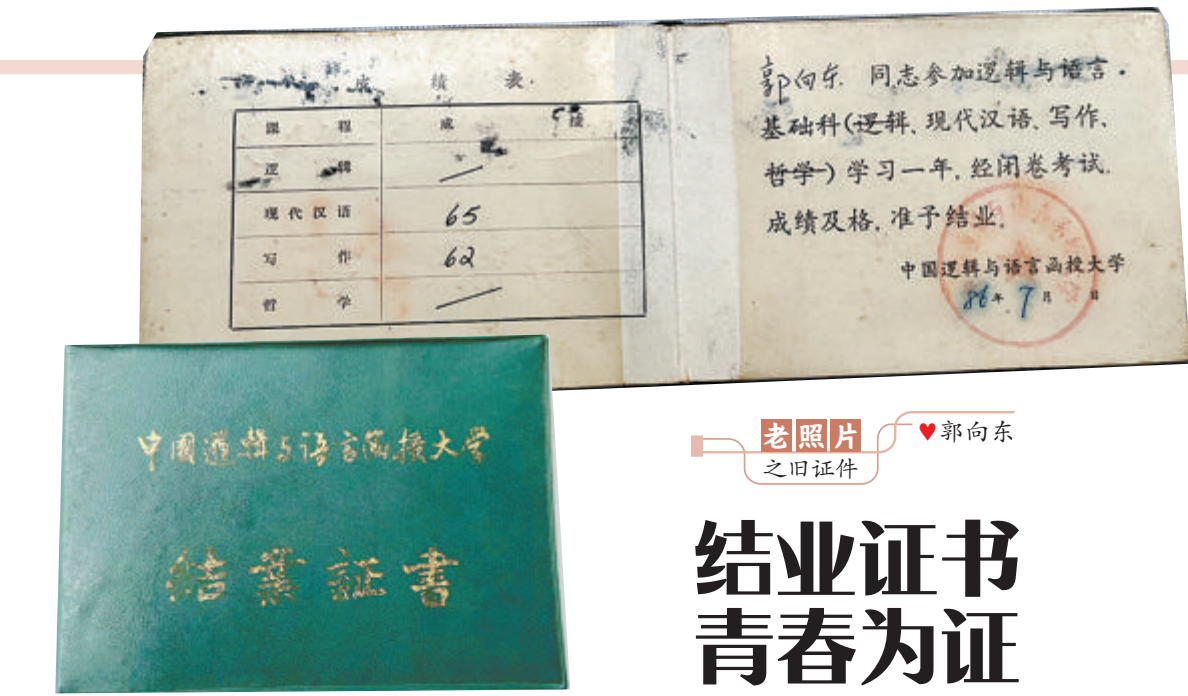 成 绩 表.
课 程 成 绩
逻 辑
现代汉语 65
写 作 62
哲 学
郭向东 同志参加逻辑与语言
基础科(逻辑、现代汉语、写作、
哲学)学习一年,经闭卷考试,
成绩及格,准予结业。
中国逻辑与语言函授大学
86年7月 日
中國邏輯与语言函授大学
結業証書
老照片
之旧证件
♥郭向东
结业证书
青春为证